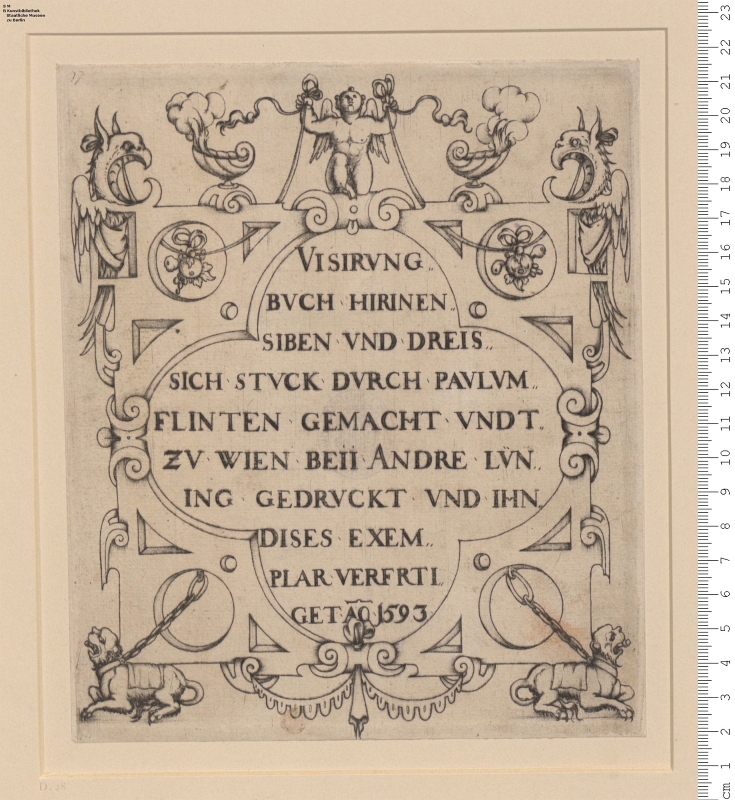 Kunstbibliothek
Staatliche Museen
zu Berlin
17
VISIRVNG
BVCH · HIRINEN
SIBEN · VND · DREIS
SICH · STVCK · DVRCH · PAVLVM
FLINTEN · GEMACHT · VNDT
ZV · WIEN · BEII · ANDRE · LVN
ING · GEDRVCKT · VND · IHN
DISES · EXEM
PLAR · VERFRTI
GET · AO · 1593
cm 1 2 3 4 5 6 7 8 9 10 11 12 13 14 15 16 17 18 19 20 21 22 23